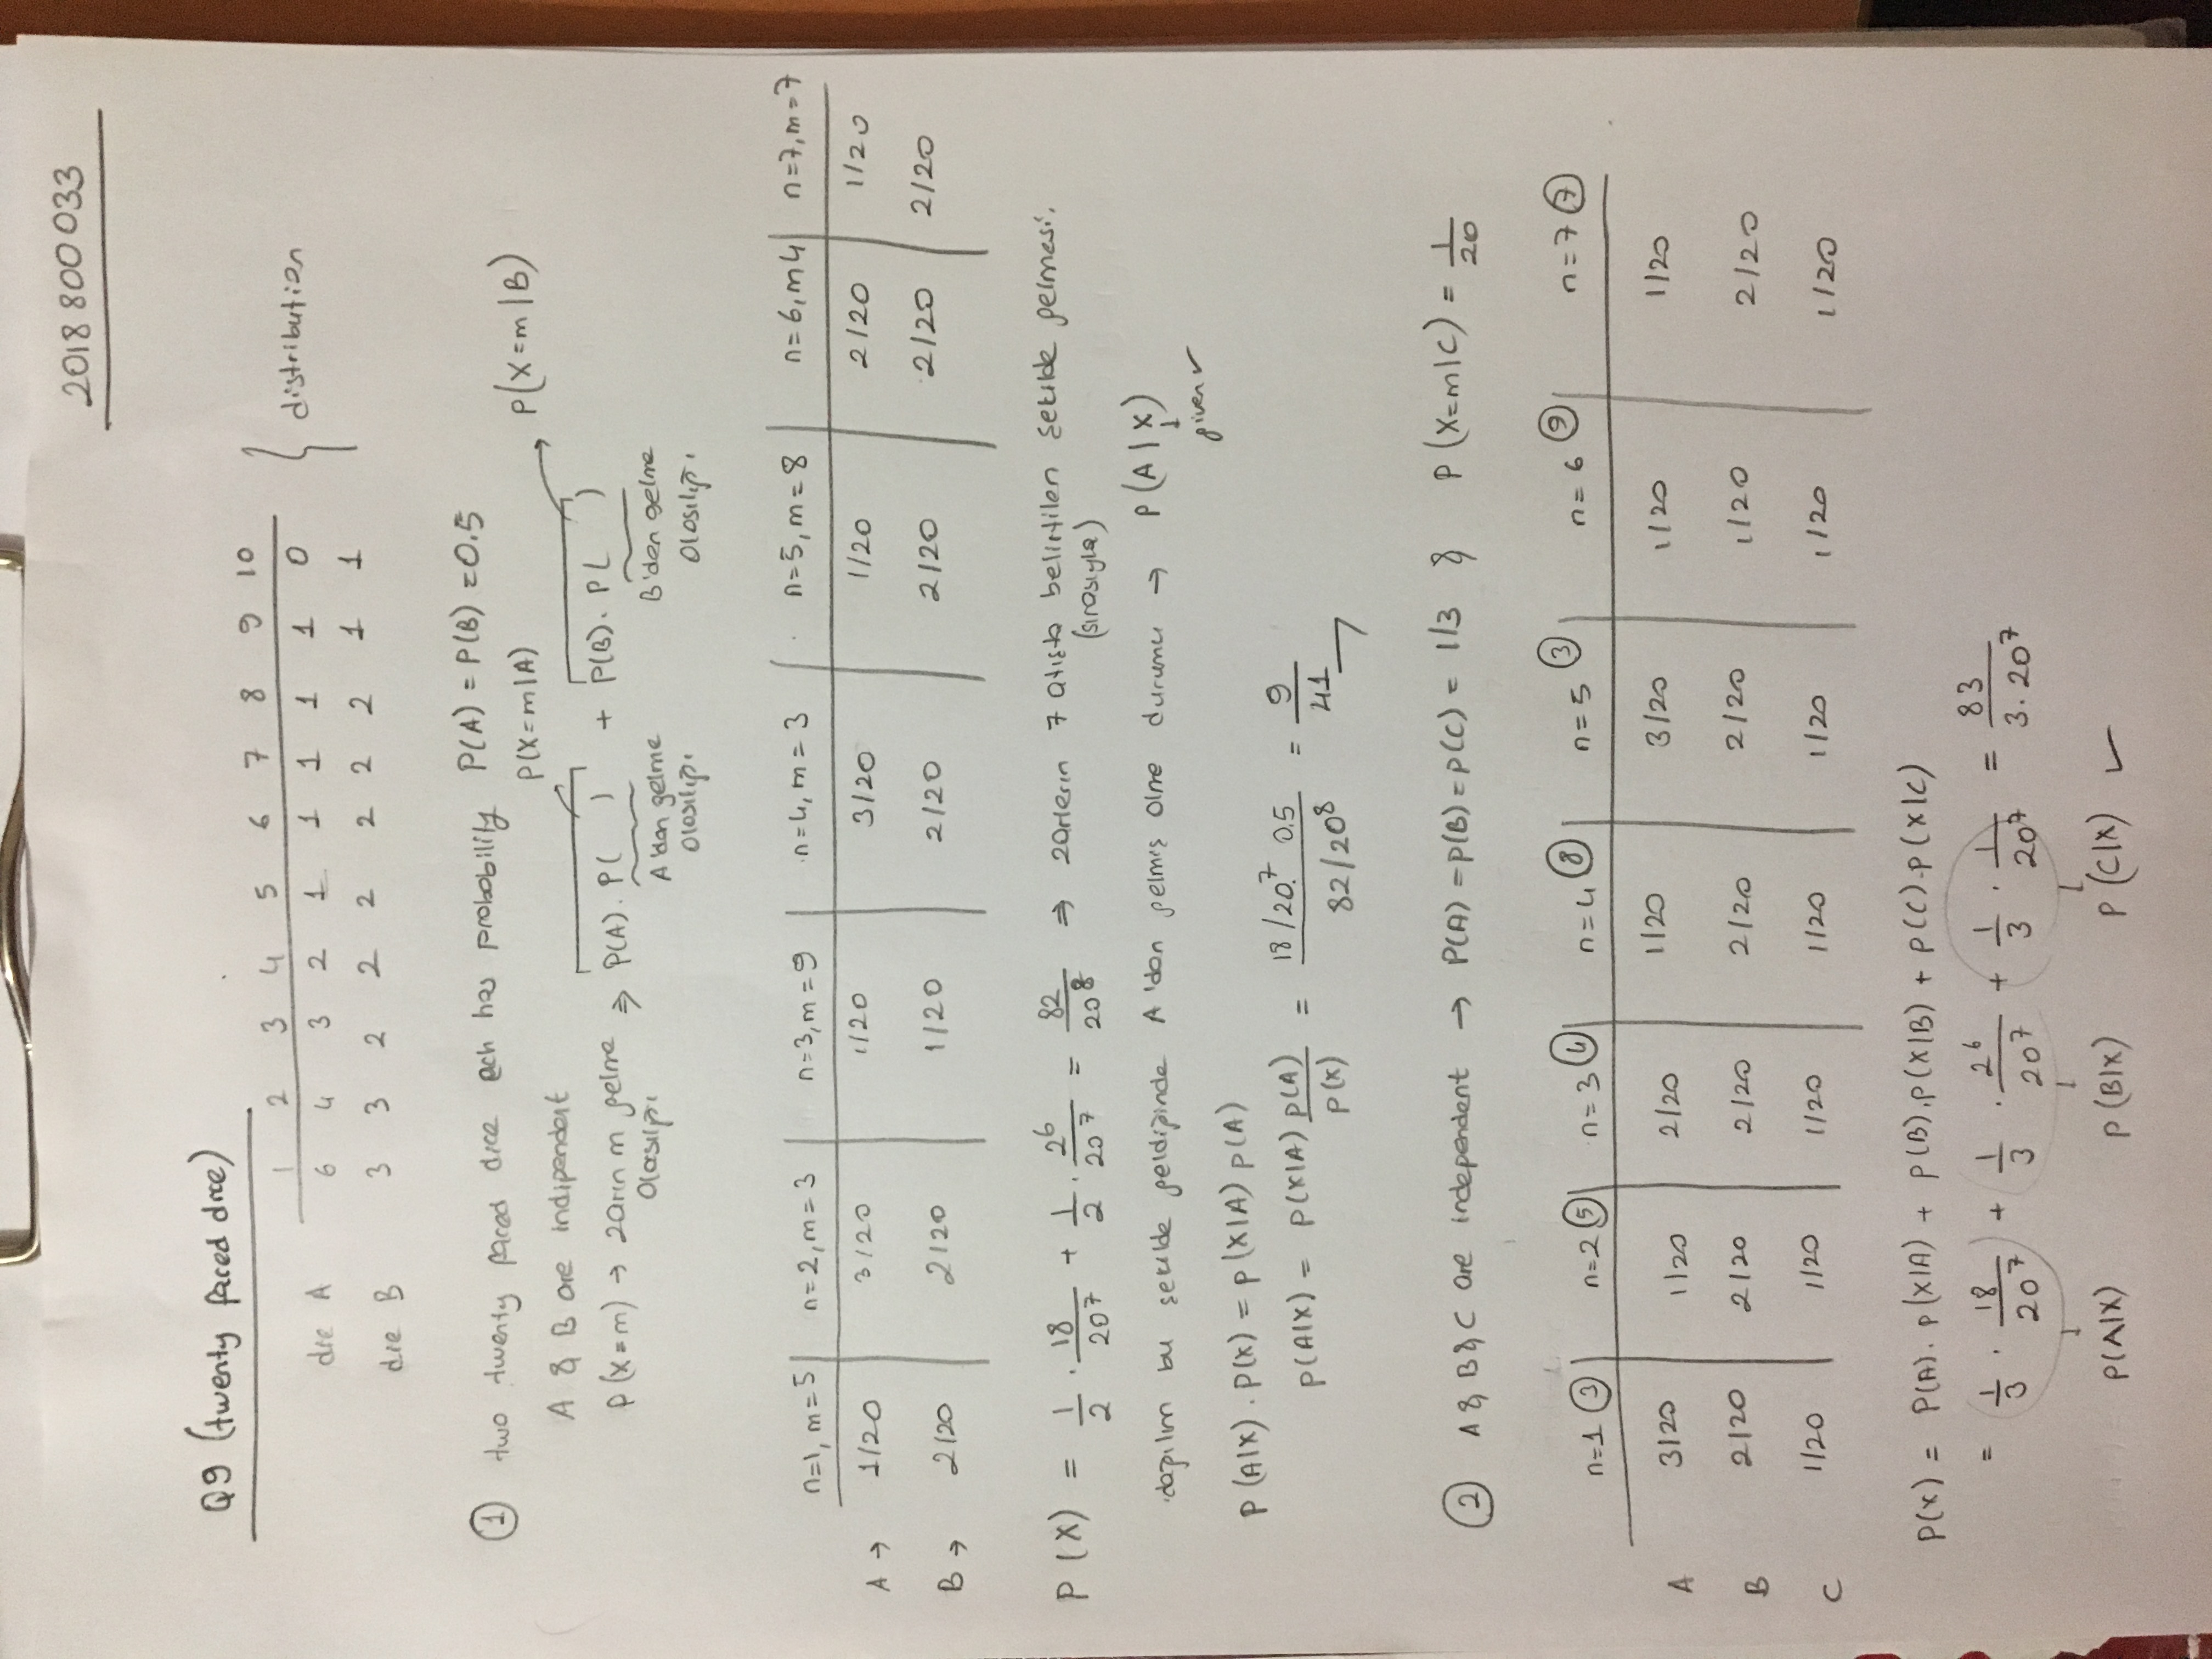 2018 800 033
Q9 (twenty faced dice)
1 2 3 4 5 6 7 8 9 10
die A 6 4 3 2 1 1 1 1 1 0
die B 3 3 2 2 2 2 2 2 1 1
} distribution
① two twenty faced dice ech has probability P(A) = P(B) = 0.5
P(X=m|A) P(X=m|B)
A & B are indipendent
P(X=m) → zarın m gelme olasılığı ⇒ P(A). P( ) + P(B). P( )
A'dan gelme olasılığı
B'den gelme olasılığı
n=1, m=5 n=2, m=3 n=3, m=9 n=4, m=3 n=5, m=8 n=6, m4 n=7, m=7
A → 1/20 3/20 1/20 3/20 1/20 2/20 1/20
B → 2/20 2/20 1/20 2/20 2/20 2/20 2/20
P(X) = 1/2 . 18/20^7 + 1/2 . 2^6/20^7 = 82/20^8 ⇒ zarların 7 atışta belirtilen şekilde gelmesi.
(sırasıyla)
dağılım bu şekilde geldiğinde A'dan gelmiş olma durumu → P(A|X)
↓
given ✓
P(A|X). P(X) = P(X|A) P(A)
P(A|X) = P(X|A) P(A)/P(X) = 18/20^7. 0.5 / 82/20^8 = 9/41
② A & B & C are independent → P(A) = P(B) = P(C) = 1/3 & P(X=m|C) = 1/20
n=1 ③ n=2 ⑤ n=3 ④ n=4 ⑧ n=5 ③ n=6 ⑨ n=7 ⑦
A 3/20 1/20 2/20 1/20 3/20 1/20 1/20
B 2/20 2/20 2/20 2/20 2/20 1/20 2/20
C 1/20 1/20 1/20 1/20 1/20 1/20 1/20
P(X) = P(A). P(X|A) + P(B). P(X|B) + P(C). P(X|C)
= 1/3 . 18/20^7 + 1/3 . 2^6/20^7 + 1/3 . 1/20^7 = 83/3.20^7
↓ ↓ ↓
P(A|X) P(B|X) P(C|X) ✓